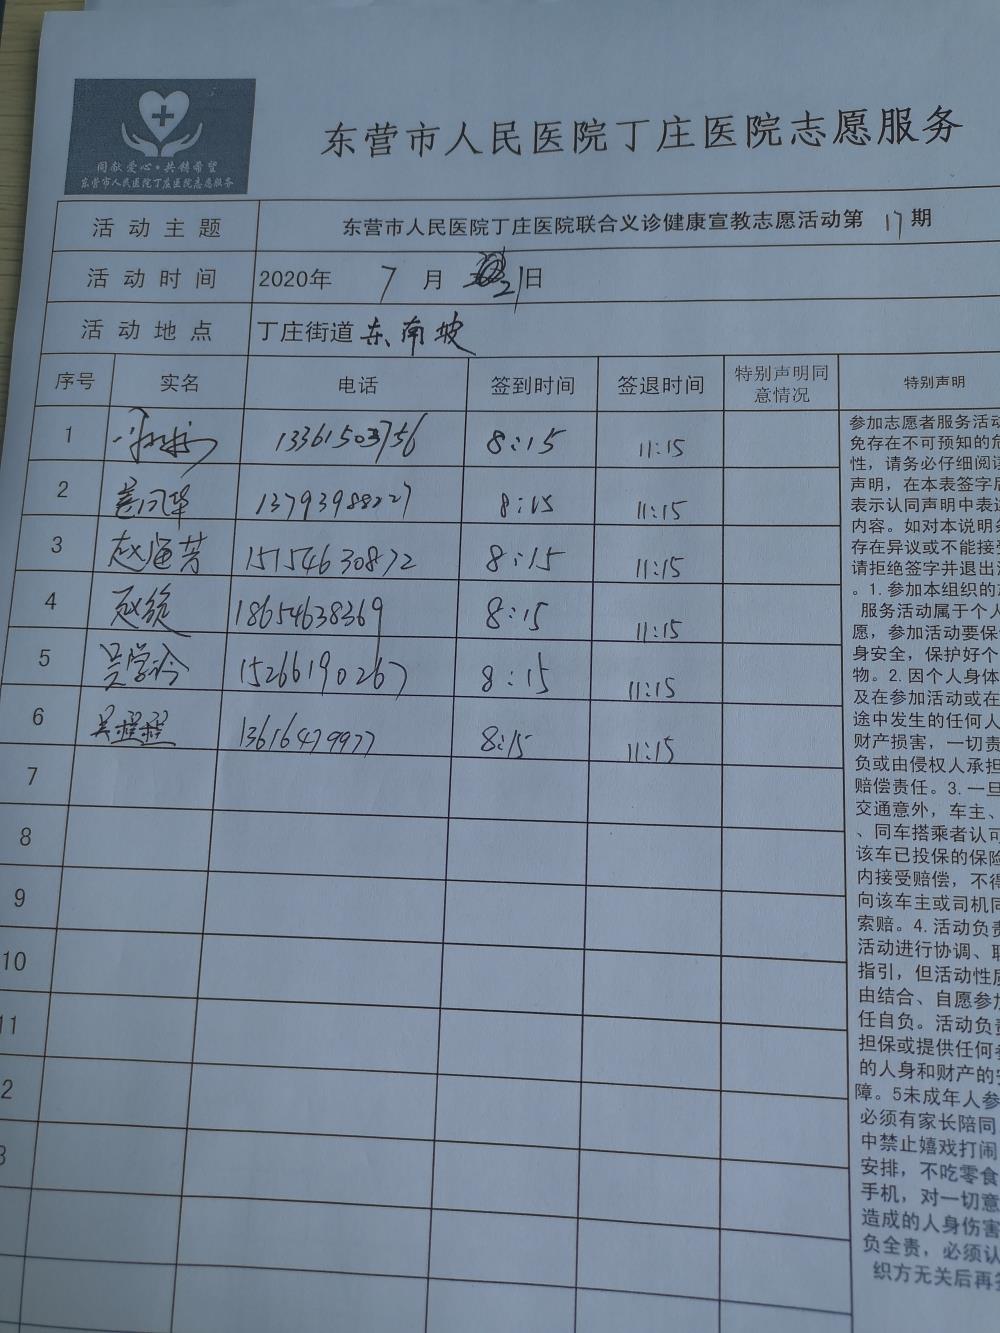 同献爱心·共铸希望
东营市人民医院丁庄医院志愿服务
东营市人民医院丁庄医院志愿服务
活动主题 东营市人民医院丁庄医院联合义诊健康宣教志愿活动第 17 期
活动时间 2020年 7 月 21日
活动地点 丁庄街道 东南坡
序号 实名 电话 签到时间 签退时间 特别声明同意情况 特别声明
1 13361503756 8:15 11:15
2 13793988227 8:15 11:15
3 赵海芳 15154630872 8:15 11:15
4 18654638369 8:15 11:15
5 吴学玲 15266190267 8:15 11:15
6 13616479977 8:15 11:15
7
8
9
10
11
2
3
参加志愿者服务活动
免存在不可预知的危
性，请务必仔细阅读
声明，在本表签字后
表示认同声明中表述
内容。如对本说明条
存在异议或不能接受
请拒绝签字并退出活
。1.参加本组织的志
服务活动属于个人
愿，参加活动要保
身安全，保护好个
物。2.因个人身体
及在参加活动或在
途中发生的任何人
财产损害，一切责
负或由侵权人承担
赔偿责任。3.一旦
交通意外，车主、
、同车搭乘者认可
该车已投保的保险
内接受赔偿，不得
向该车主或司机同
索赔。4.活动负责
活动进行协调、联
指引，但活动性质
由结合、自愿参加
任自负。活动负责
担保或提供任何参
的人身和财产的安
障。5未成年人参
必须有家长陪同
中禁止嬉戏打闹
安排，不吃零食
手机，对一切意
造成的人身伤害
负全责，必须认
织方无关后再签